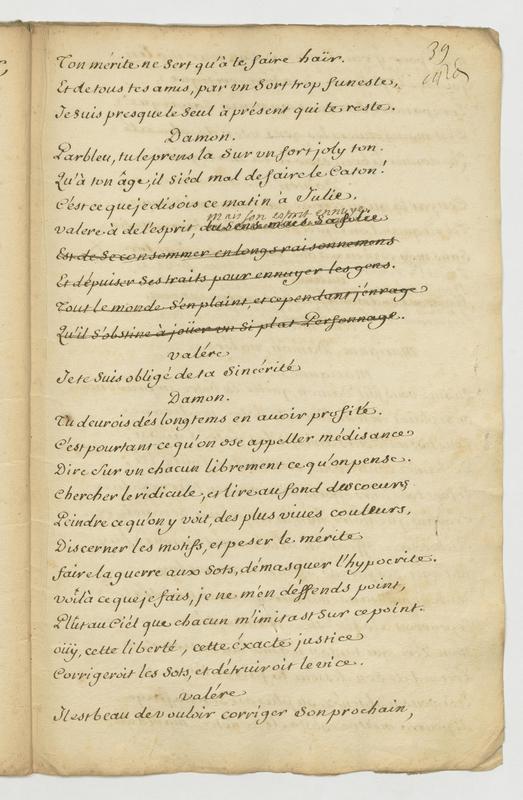 39
Ton mérite ne sert qu'à te faire haïr.
Et de tous tes amis, par vn sort trop funeste,
Je suis presque le seul à présent qui te reste.
Damon.
Parbleu, tu le prens la sur vn fort joly ton.
Qu'à ton âge, il siéd mal de faire le Caton!
C'est ce que je disois ce matin à Julie.
mais son esprit ennuye.
valere à de l'esprit, du sens, mais sa folie
Est de se consommer en longs raisonnemens
Et d'épuiser ses traits pour ennuyer les gens.
Tout le monde s'en plaint, et cependant j'enrage
Qu'il s'obstine à joüer vn si plat Personnage.
valére
Je te suis obligé de ta sincérité
Damon.
Tu deurois dés longtems en auoir profité.
C'est pourtant ce qu'on ose appeller médisance
Dire sur vn chacun librement ce qu'on pense.
Chercher le ridicule, et lire au fond des coeurs
Peindre ce qu'on y voit, des plus viues couleurs,
Discerner les motifs, et peser le mérite
faire la guerre aux Sots, démasquer l'hypocrite.
voilà ce que je fais, je ne m'en déffends point,
Plût au Ciél que chacun m'imitast sur ce point.
oüy, cette liberté, cette éxacte justice
Corrigeroit les Sots, et détruiroit le vice.
valére
Il est beau de vouloir corriger son prochain,